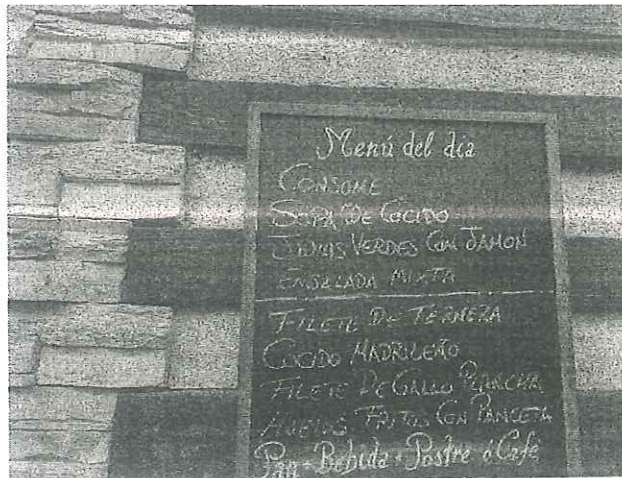 Menú del dia
CONSOME
SOPA DE COCIDO
JUDIAS VERDES CON JAMON
ENSALADA MIXTA
FILETE DE TERNERA
COCIDO MADRILEÑO
FILETE DE GALLO PLANCHA
HUEVOS FRITOS CON PANCETA
Pan - Bebida - Postre ó Café